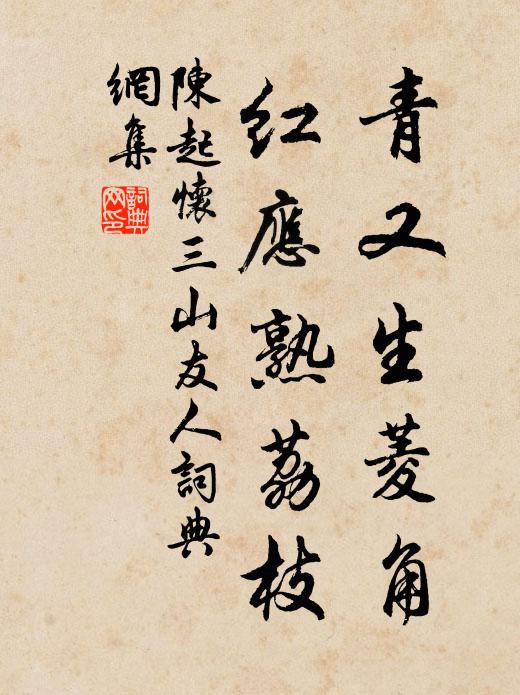 青又生菱角
紅應熟荔枝
陳起懷三山友人詞典
網集
詞典
网印